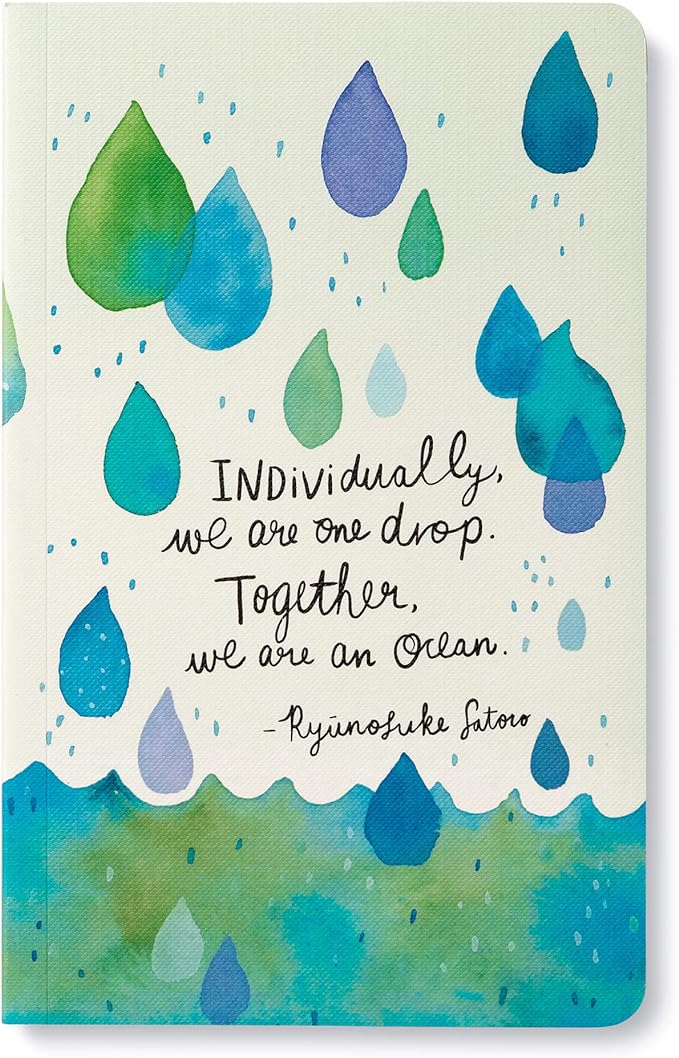 INDividually,
we are one drop.
Together,
we are an Ocean.
-Ryūnosuke Satoro